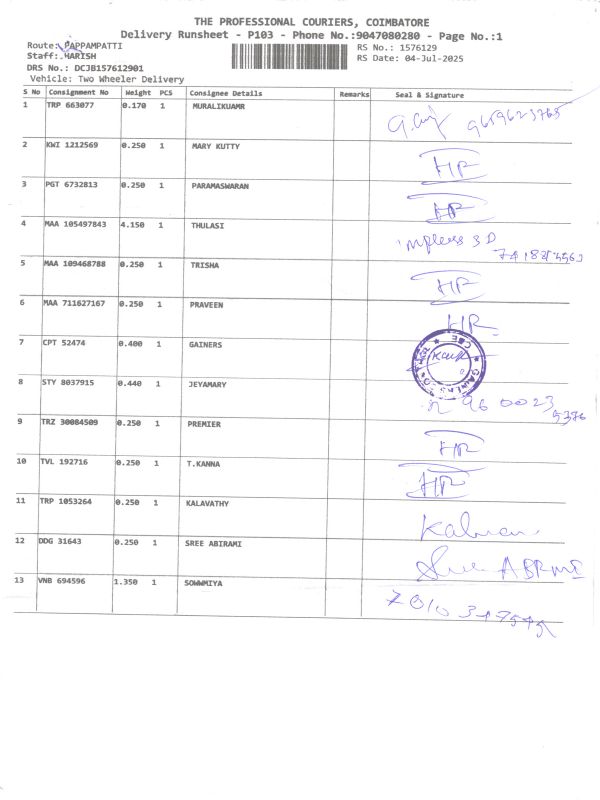 THE PROFESSIONAL COURIERS, COIMBATORE
Delivery Runsheet - P103 - Phone No.:9047080280 - Page No.:1
Route: PAPPAMPATTI
RS No.: 1576129
Staff: HARISH
RS Date: 04-Jul-2025
DRS No.: DCJB157612901
Vehicle: Two Wheeler Delivery
S No Consignment No Weight PCS Consignee Details Remarks Seal & Signature
1 TRP 663077 0.170 1 MURALIKUAMR 9659623765
2 KWI 1212569 0.250 1 MARY KUTTY HR
3 PGT 6732813 0.250 1 PARAMASWARAN HR
4 MAA 105497843 4.150 1 THULASI 3D
5 MAA 109468788 0.250 1 TRISHA HR
6 MAA 711627167 0.250 1 PRAVEEN HR
7 CPT 52474 0.400 1 GAINERS CBE
8 STY 8037915 0.440 1 JEYAMARY 96 0023 5376
9 TRZ 30084509 0.250 1 PREMIER HR
10 TVL 192716 0.250 1 T.KANNA HR
11 TRP 1053264 0.250 1 KALAVATHY
12 DDG 31643 0.250 1 SREE ABIRAMI
13 VNB 694596 1.350 1 SOWWMIYA